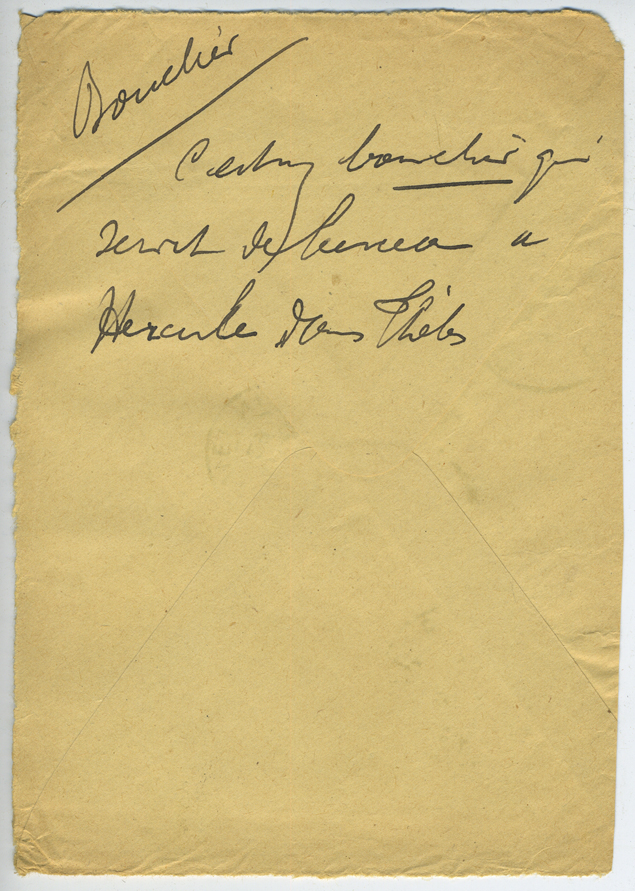 Bouclier
C'est un bouclier qui
servit de berceau a
Hercule dans Thèbes